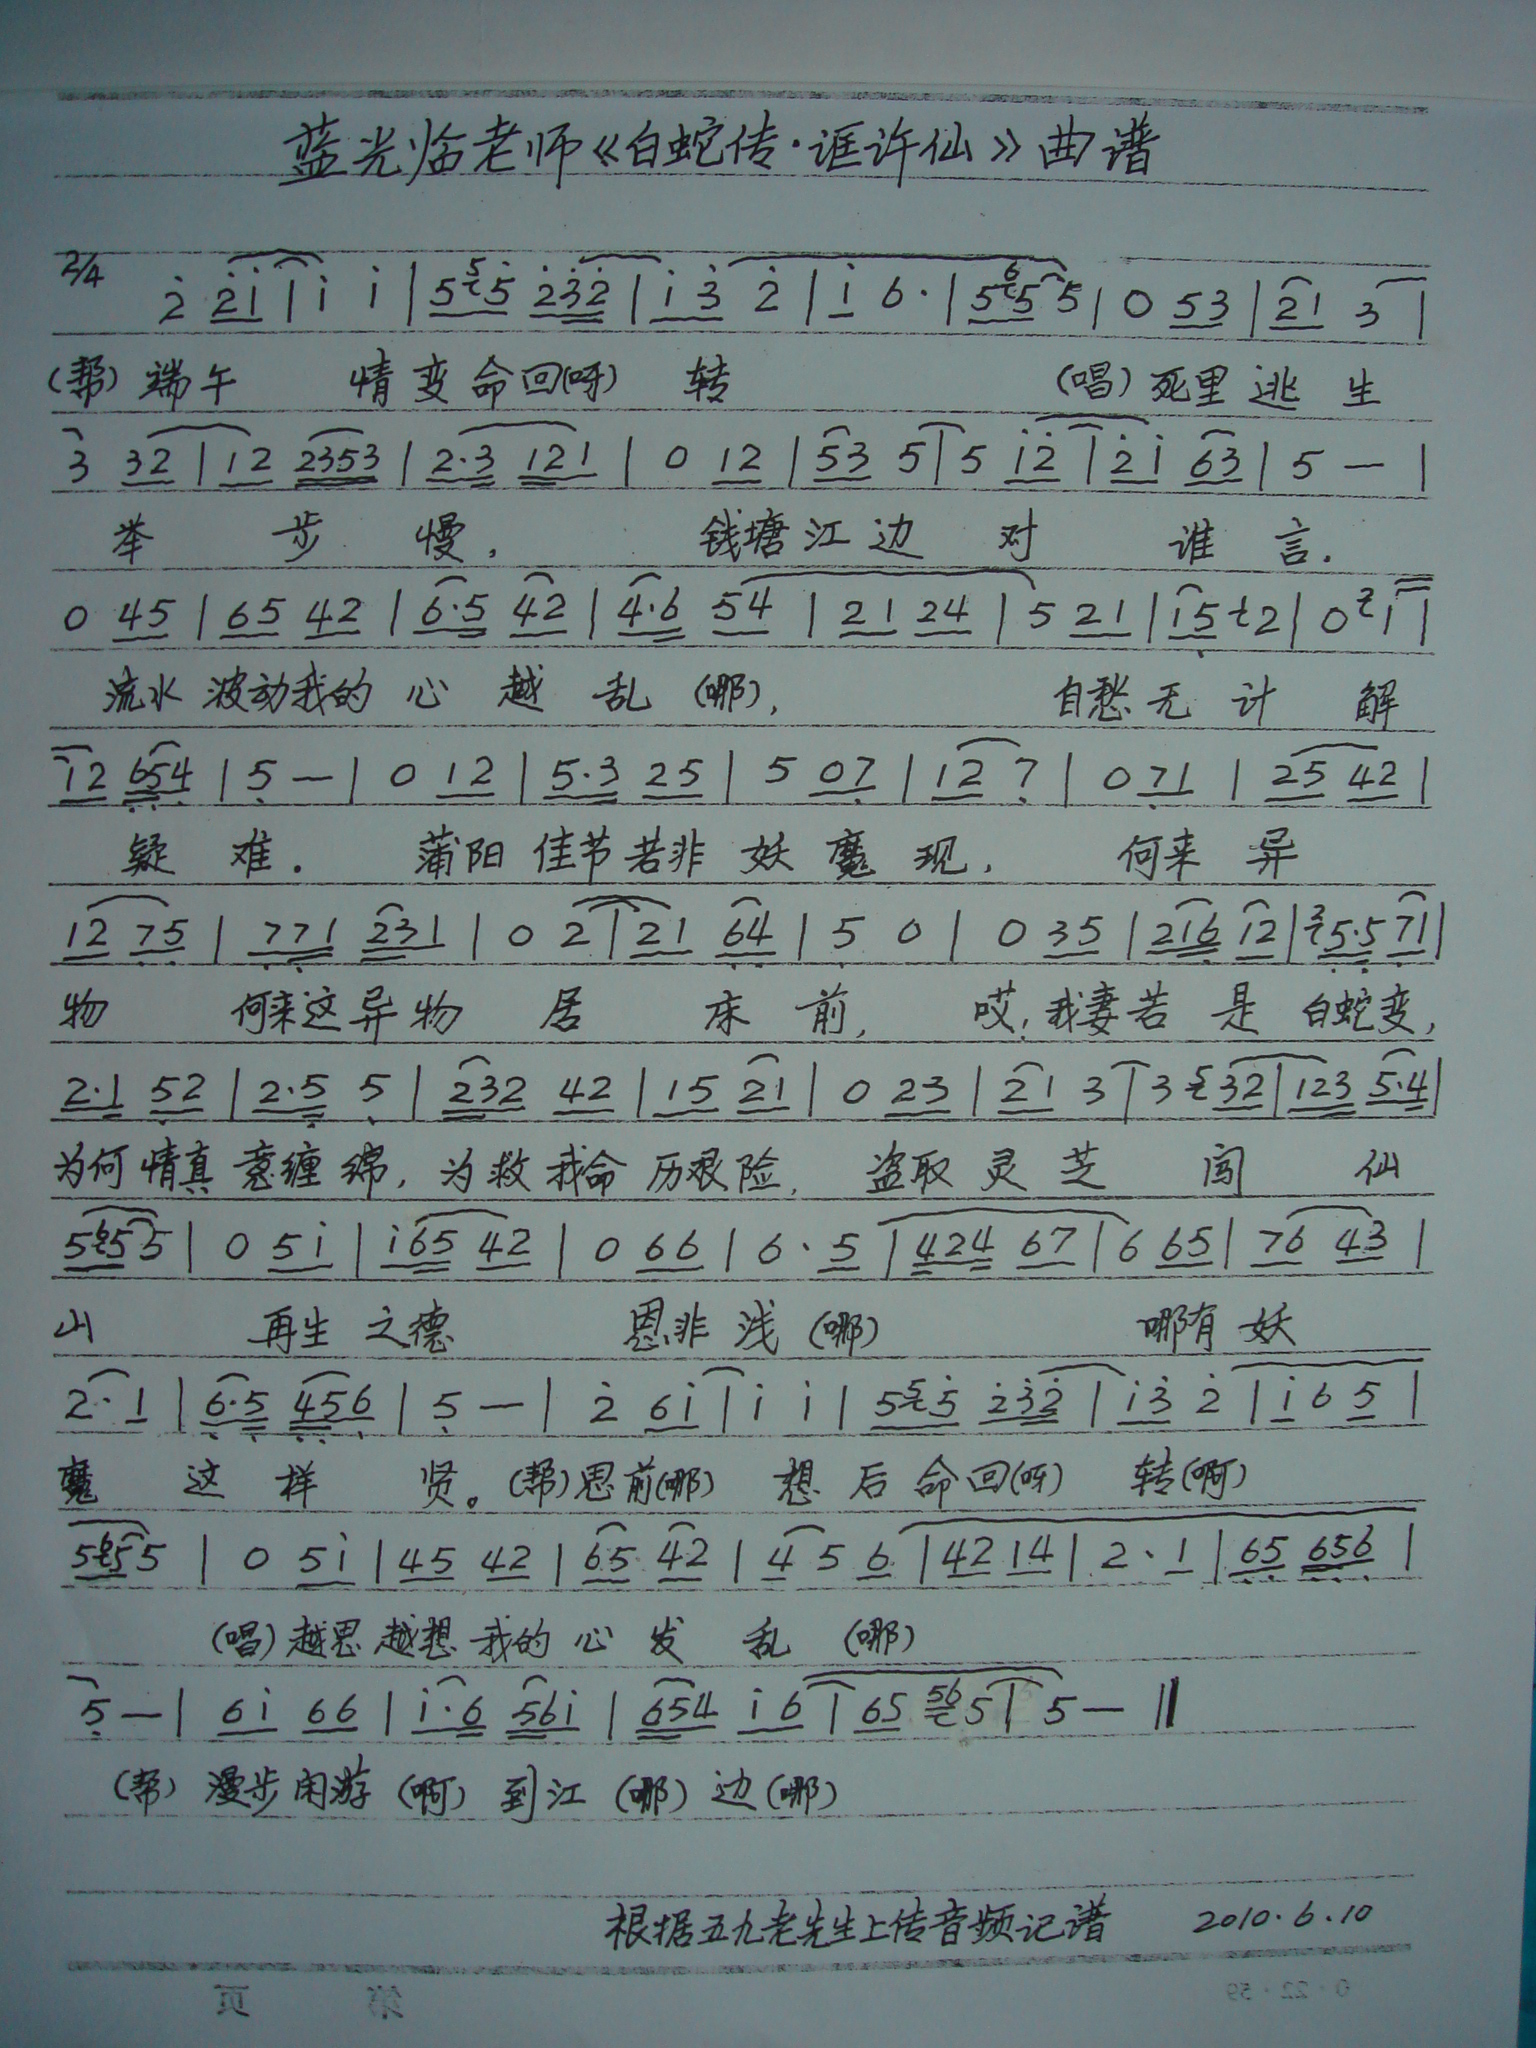 蓝光临老师《白蛇传·诓许仙》曲谱
2/4 2̇ 2̇i | i i | 5 5 5̇ 2̇3̇2̇ | i3̇ 2̇ | i 6· | 5 6 5 5 | 0 53 | 21 3 |
(帮) 端午 情变命回(呀) 转 (唱) 死里逃生
3 32 | 12 2353 | 2·3 121 | 0 12 | 53 5 | 5 i2̇ | 2̇i 63 | 5 — |
举步慢, 钱塘江边对谁言.
0 45 | 65 42 | 6·5 42 | 4·6 54 | 21 24 | 5 21 | 15̣ 2 | 0 2 1 |
流水波动我的心越乱(哪), 自愁无计解
12 6̣5̣4̣ | 5̣ — | 0 12 | 5·3 25 | 5 07̣ | 12 7̣ | 07̣1 | 25 42 |
疑难. 蒲阳佳节若非妖魔现, 何来异
12 7̣5̣ | 7̣7̣1 231 | 0 2 | 21 6̣4̣ | 5̣ 0 | 0 35 | 216̣ 12 | 2 5̣·5̣ 7̣1 |
物 何来这异物居床前, 哎,我妻若是白蛇变,
2·1 5̣2 | 2·5̣ 5̣ | 232 42 | 15 21 | 0 23 | 21 3 | 3 5 32 | 123 5·4 |
为何情真意缠绵, 为救我命历艰险, 盗取灵芝闯仙
5 6 5 5 | 0 5i | i65 42 | 0 66 | 6·5 | 424 67 | 6 65 | 76 43 |
山 再生之德 恩非浅(哪) 哪有妖
2·1 | 6̣·5̣ 4̣5̣6̣ | 5̣ — | 2̇ 6i | i i | 5 5 5̇ 2̇3̇2̇ | i3̇ 2̇ | i 6 5 |
魔这样贤。(帮)思前(哪) 想后命回(呀) 转(啊)
5 6 5 5 | 0 5i | 45 42 | 65 42 | 4 5 6 | 42 14 | 2·1 | 6̣5̣ 6̣5̣6̣ |
(唱)越思越想我的心发乱 (哪)
5̣ — | 6i 66 | i·6 56i | 654 i6 | 65 56 5 | 5 — ‖
(帮) 漫步闲游(啊) 到江(哪) 边(哪)
根据五九老先生上传音频记谱 2010.6.10
第 页
0·22·59